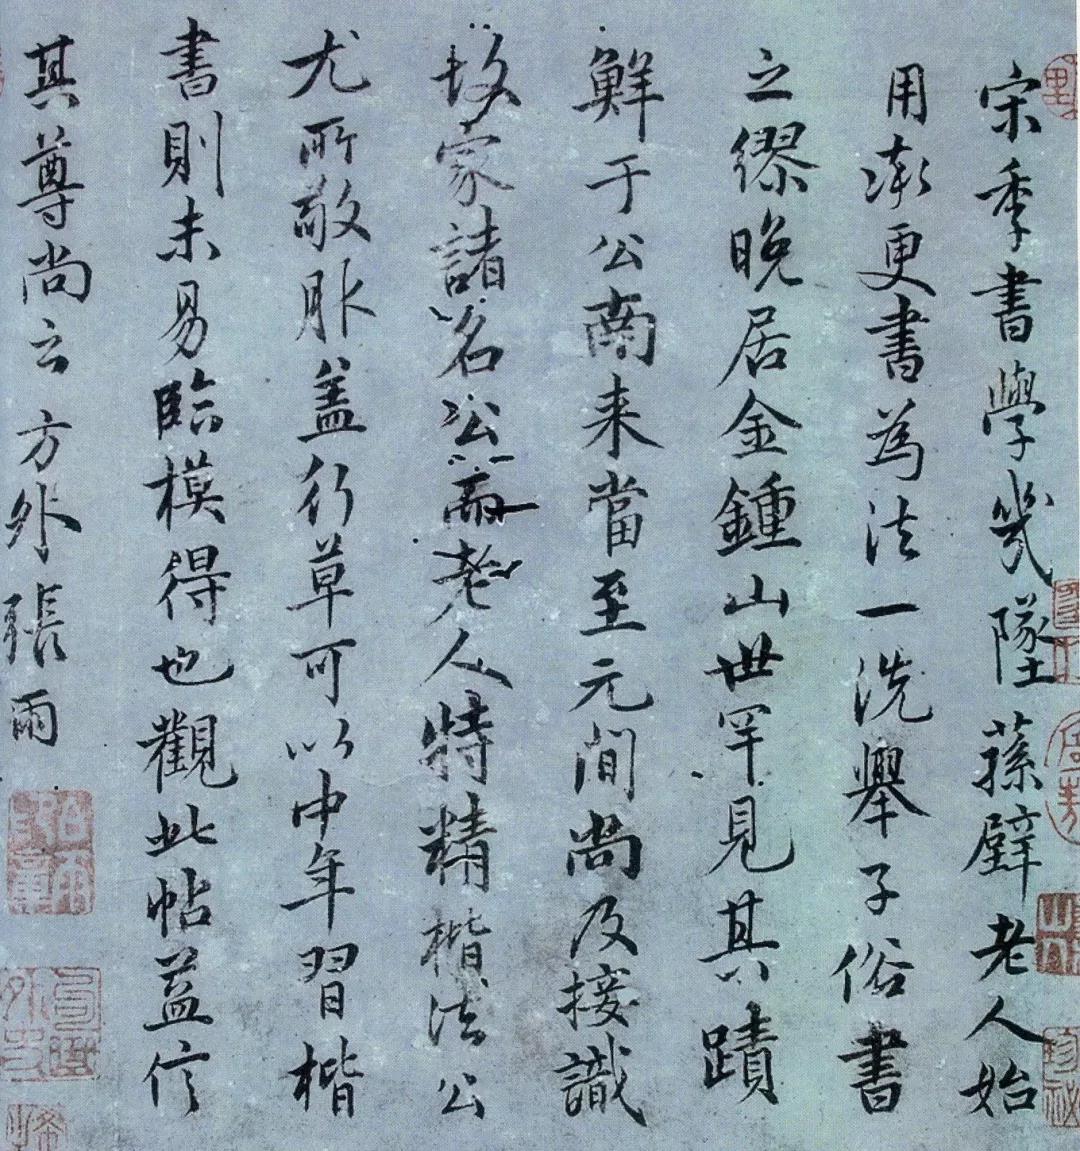 宋季書學幾墜蓀壁老人始
用漸更書為法一洗舉子俗書
之繆晚居金鍾山世罕見其蹟
鮮于公南来當至元間尚及接識
故家諸名公而老人特精楷法公
尤所敬卧盖行草可以中年習楷
書則未易臨模得也觀此帖益信
其尊尚云 方外張雨